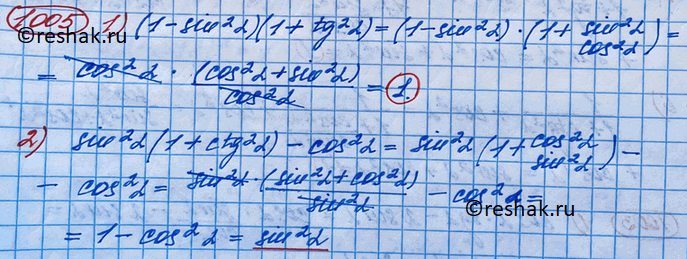 1005 1) (1-sin²α)(1+tg²α) = (1-sin²α)·(1+ sin²α/cos²α) =
= cos²α · (cos²α+sin²α)/cos²α = 1.
©reshak.ru
2) sin²α(1+ctg²α) - cos²α = sin²α(1+ cos²α/sin²α) -
- cos²α = sin²α·(sin²α+cos²α)/sin²α - cos²α =
©reshak.ru
= 1-cos²α = sin²α